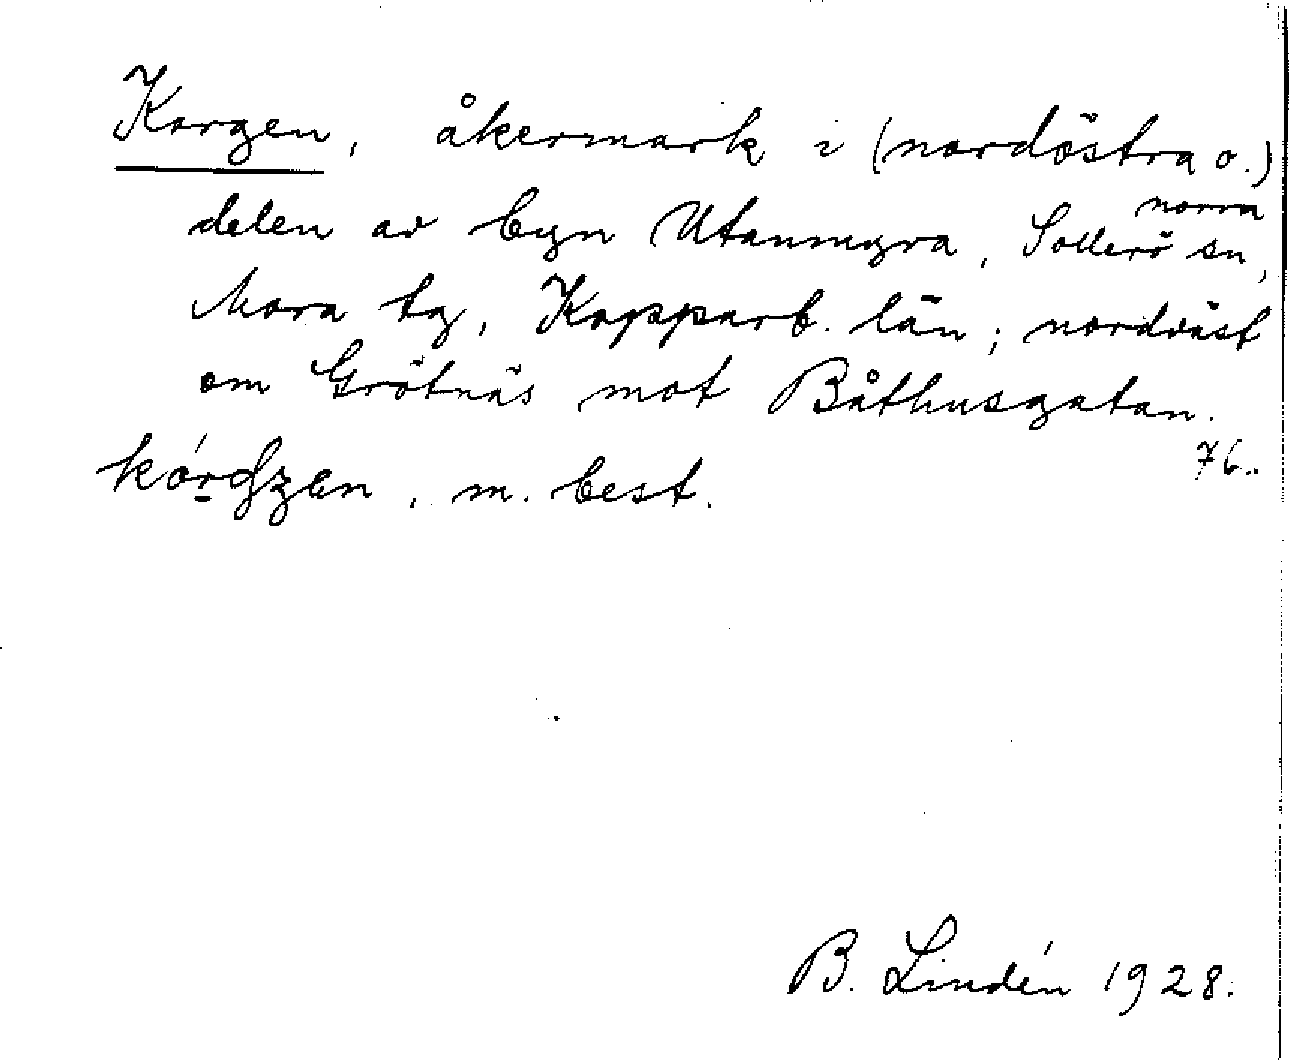 Korgen, åkermark i (nordöstra o.)
norra
delen av byn Utanmyra, Sollerö sn,
Mora tg, Kopparb. län; nordväst
om Grötnäs mot Båthusgatan.
76..
m. best.
B. Lindén 1928.